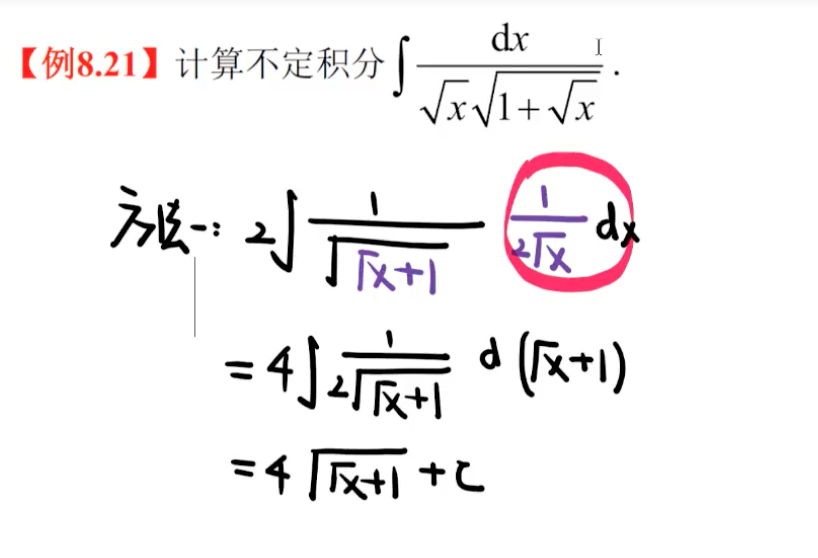 【例8.21】计算不定积分∫ dx/(√x√(1+√x)) .
方法一: 2∫ 1/√(√x+1) 1/(2√x) dx
= 4∫ 1/(2√(√x+1)) d(√x+1)
= 4√(√x+1) + C